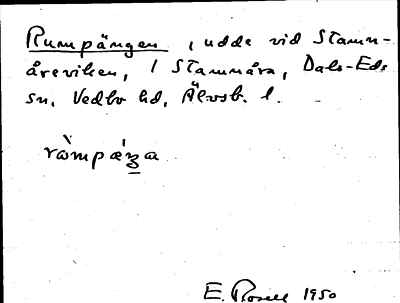 Rumpängen, udde vid Stamn-
åreviken, i Stamnåra, Dals-Eds
sn, Vedbo hd, Älvsb. l.
E. Rosell 1950